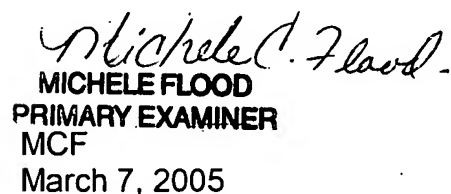 Michele C. Flood
MICHELE FLOOD
PRIMARY EXAMINER
MCF
March 7, 2005